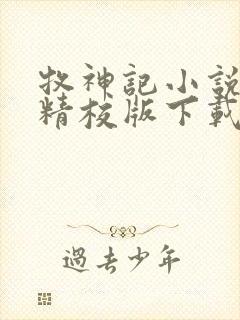 牧神記小說
精校版下載
過去少年